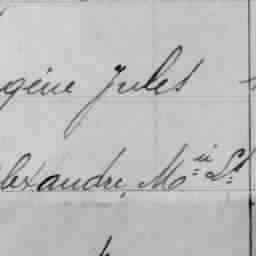 gène Jules
lexandre, Mii Lt